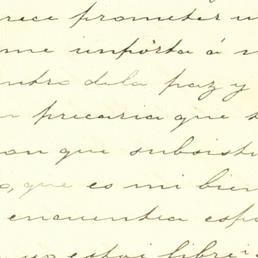 rece prometer u
me importa á m
ntro dela paz y
n precaria que
on que subsisti
o, que es mi bien
encuentra espa
yo estoi libre